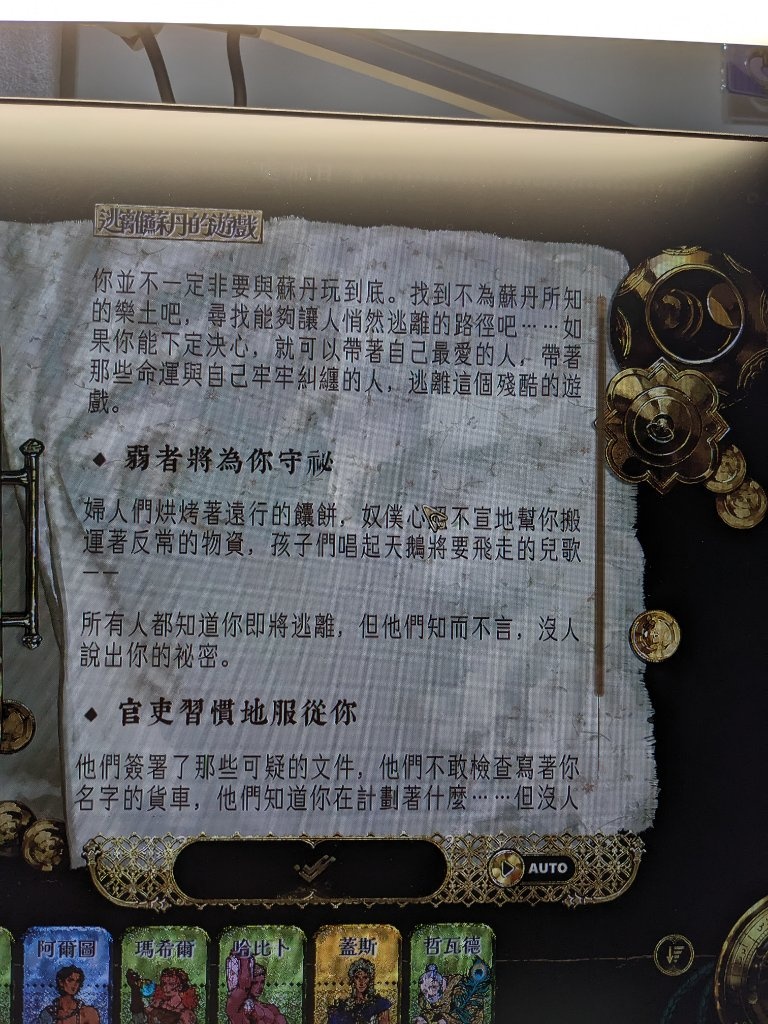 逃離蘇丹的遊戲
你並不一定非要與蘇丹玩到底。找到不為蘇丹所知
的樂土吧，尋找能夠讓人悄然逃離的路徑吧……如
果你能下定決心，就可以帶著自己最愛的人，帶著
那些命運與自己牢牢糾纏的人，逃離這個殘酷的遊
戲。
弱者將為你守祕
婦人們烘烤著遠行的饢餅，奴僕心不宣地幫你搬
運著反常的物資，孩子們唱起天鵝將要飛走的兒歌
——
所有人都知道你即將逃離，但他們知而不言，沒人
說出你的祕密。
官吏習慣地服從你
他們簽署了那些可疑的文件，他們不敢檢查寫著你
名字的貨車，他們知道你在計劃著什麼……但沒人
AUTO
阿爾圖
瑪希爾
哈比卜
蓋斯
哲瓦德